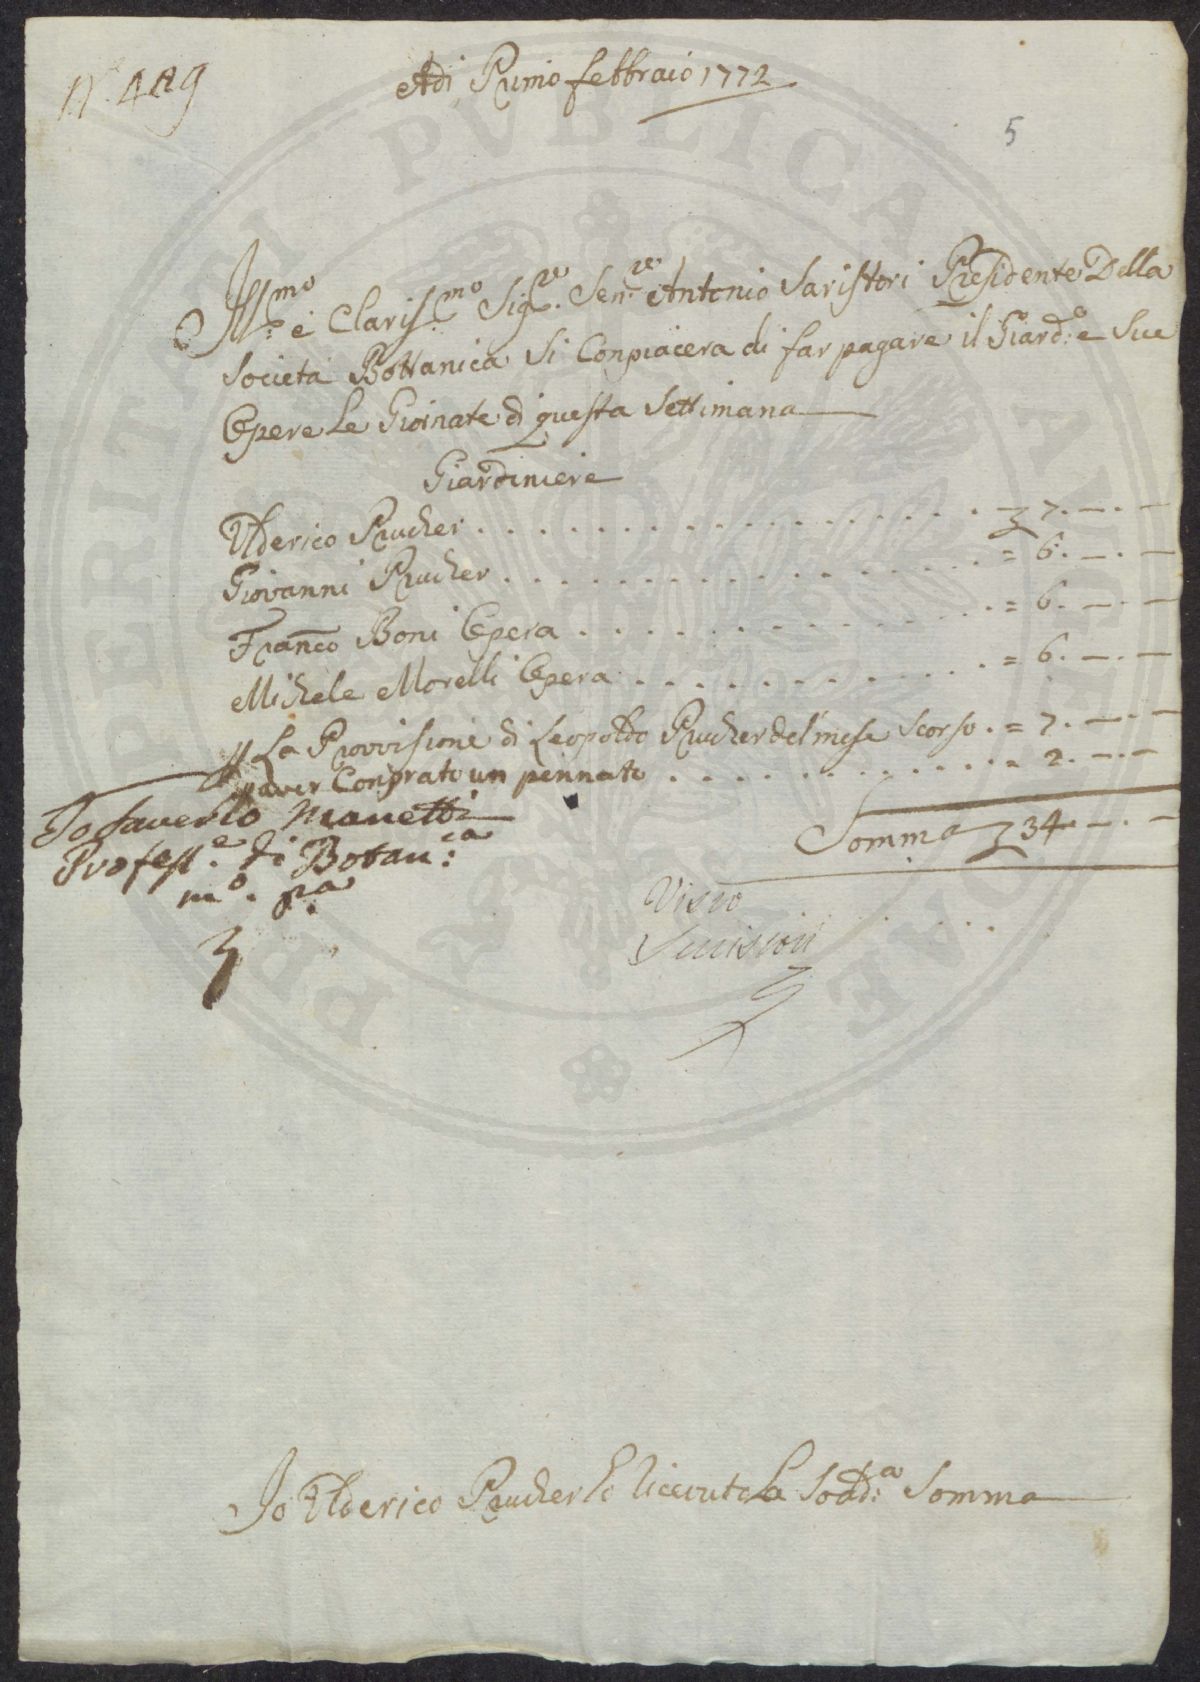 N.° 489
Adi Primo febbraio 1772
5
Ill.mo e Claris.mo Sig.re Sen.re Antonio Saristori Presidente Della
Società Bottanica Si Conpiacera di far pagare il Giard.e e Sue
Opere Le Giornate di questa Settimana
Giardiniere
Ulderico Prucher . . . . . . . . . . . . . . 7. —. —
Giovanni Prucher . . . . . . . . . . . . . . = 6. —. —
Fran̄co Boni Opera . . . . . . . . . . . . . = 6. —. —
Michele Morelli Opera . . . . . . . . . . . = 6. —. —
La Provvisione di Leopoldo Prucher del mese Scorso . = 7. —. —
p aver Conprato un pennato . . . . . . . . . . . = 2. —. —
Somma 34 —. —
Io Saverio Manetti
Profess.e di Botan.ca
m.o p.a
Visto
Io Ulderico Prucher ò riceuto La Sodd.a Somma
PERITATI PVBLICAE AVCTAE